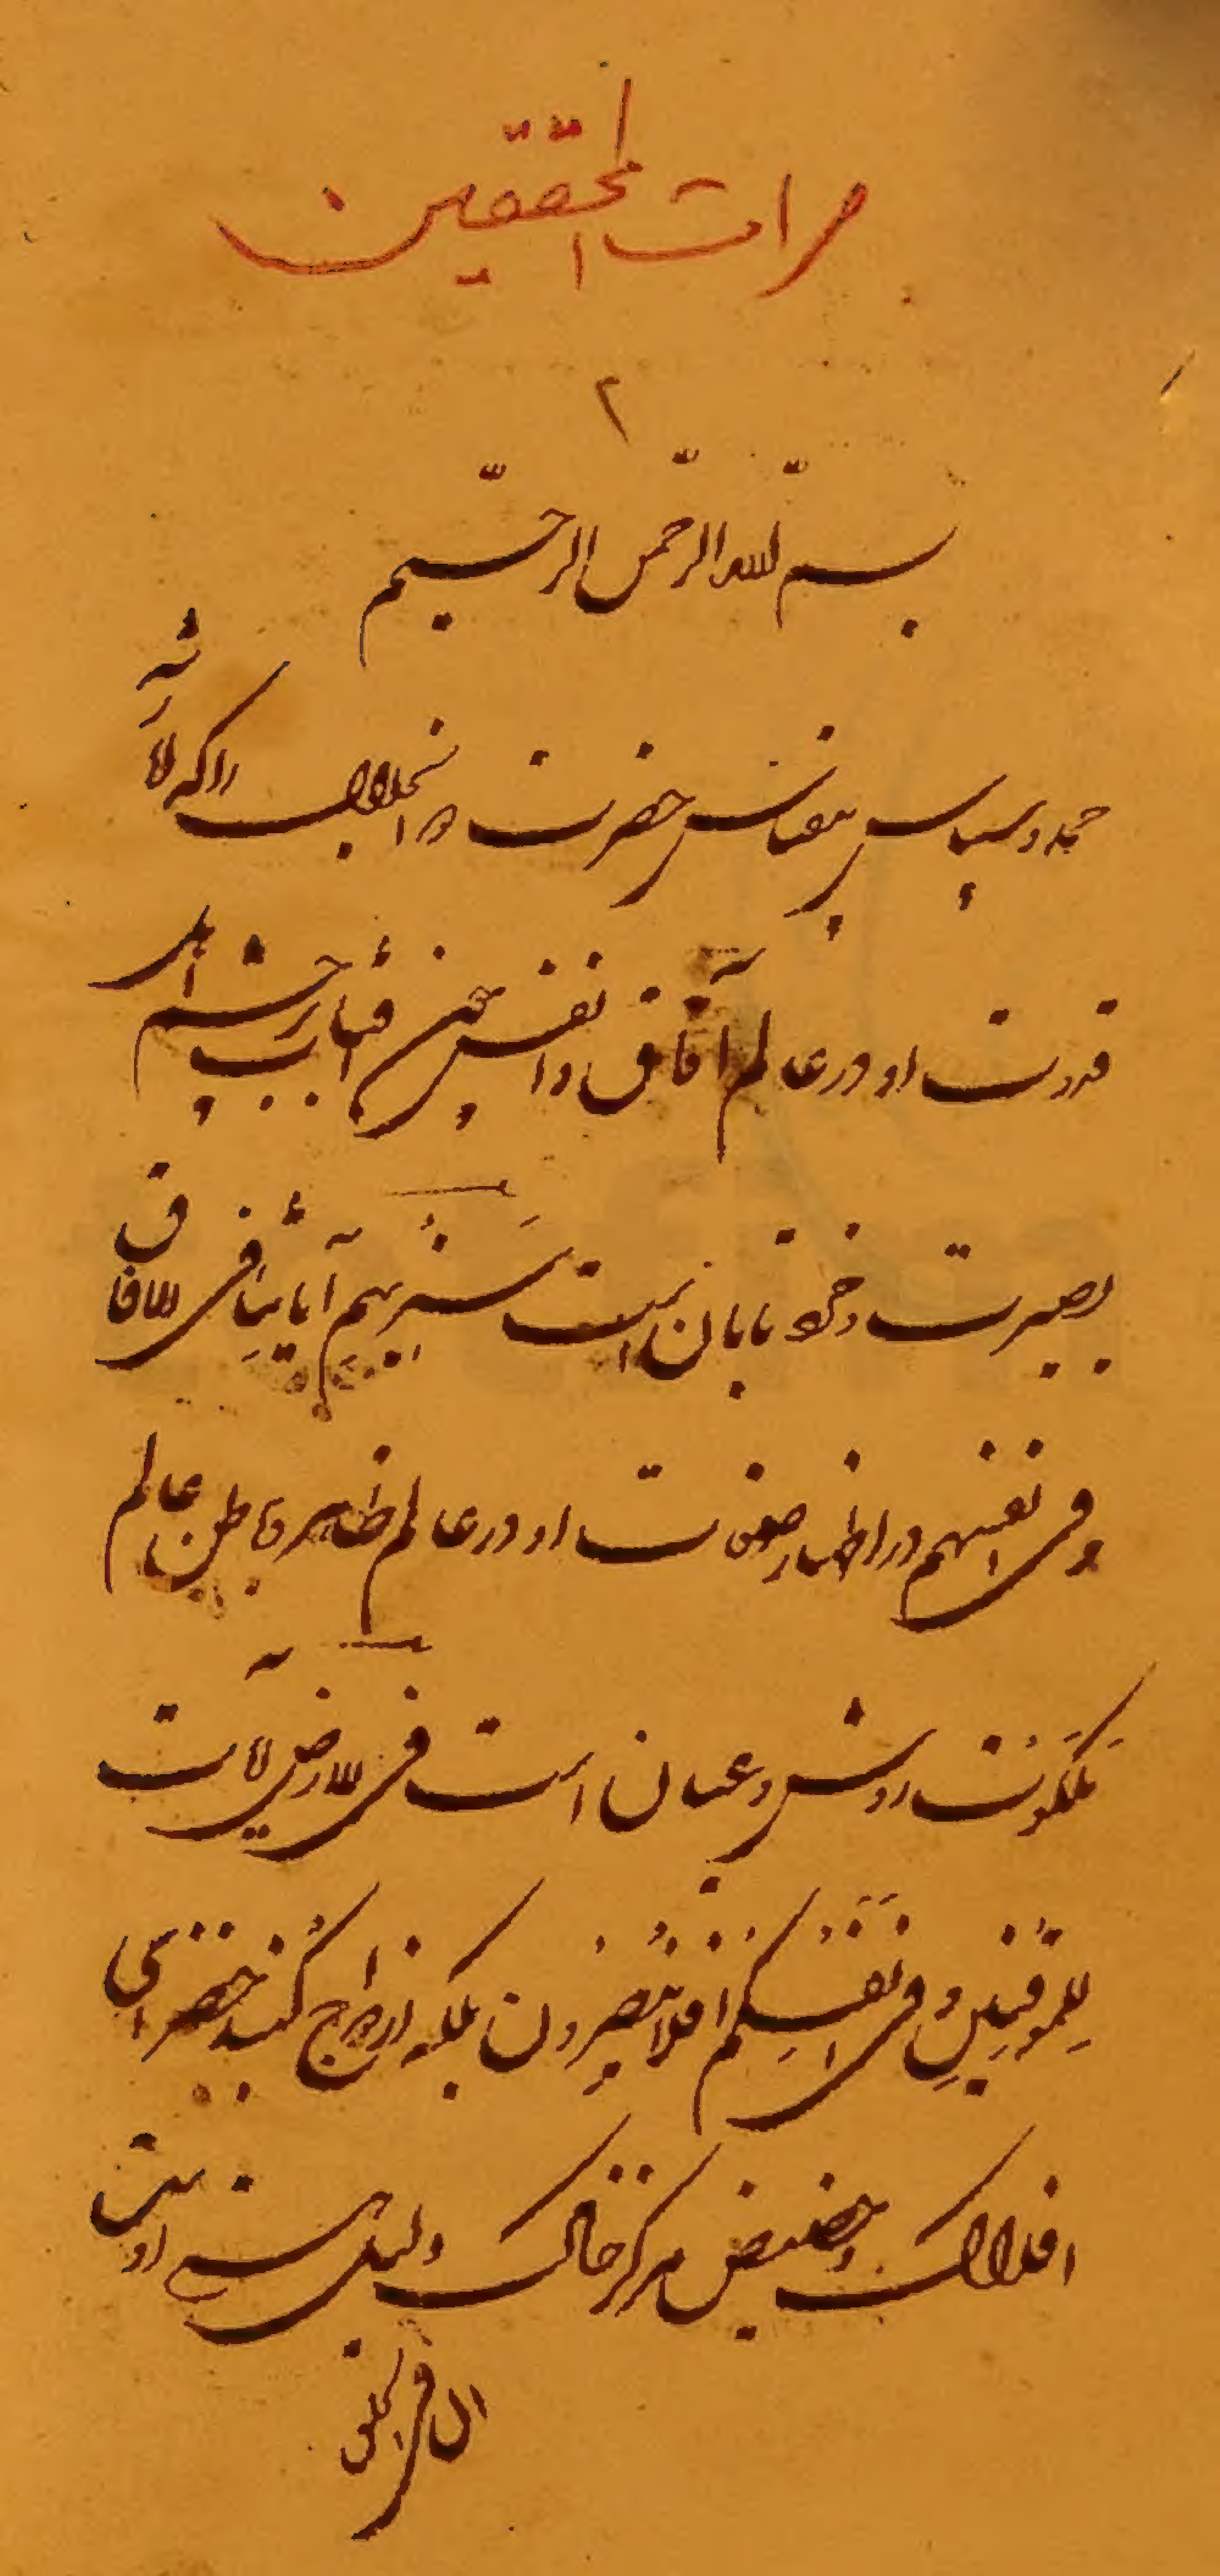 مرات المحققین
۲
بسم الله الرحمن الرحیم
حمد و سپاس بیقیاس حضرت واجب را که لاشه
قدرت او در عالم آفاق و انفس چون آفتاب بر چشم اهل
بصیرت و خرد تابان است سَنُرِیهِم آیاتِنا فِی الافاق
وفی انفسهم و در اظهار صفات او در عالم ظاهر و باطن عالم
مَلَکُوت روشن و عیان است فی الارض لآیات
لِلمُوقِنِین وَفی اَنفُسِکُم افلا تُبصِرُون بلکه از اوج گنبد خضرای
افلاک و حضیض مرکز خاک دلیل هستی اوست
ان فی خلق